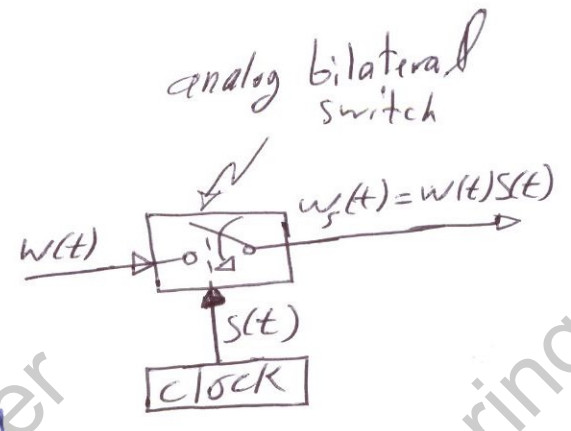 analog bilateral
switch
w(t)
wₛ(t)=w(t)S(t)
S(t)
clock
er
ring